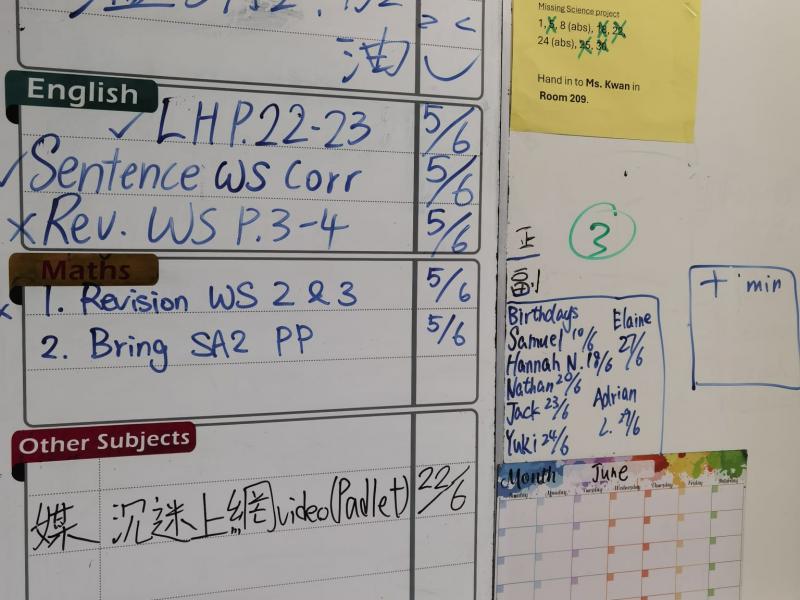 油
> <
English
✓ LH P.22-23 5/6
✓ Sentence WS Corr 5/6
x Rev. WS P.3-4 5/6
Maths
1. Revision WS 2 & 3 5/6
2. Bring SA2 PP 5/6
Other Subjects
媒 沉謎上網video(Padlet) 22/6
Missing Science project
1, 5, 8 (abs), 22
24 (abs), 25, 30
Hand in to Ms. Kwan in
Room 209.
正
副
3
Birthdays
Samuel 10/6
Hannah N. 18/6
Nathan 20/6
Jack 23/6
Yuki 24/6
Elaine
27/6
Adrian
L. 29/6
+ min
Month June
Sunday Monday Tuesday Wednesday Thursday Friday Saturday